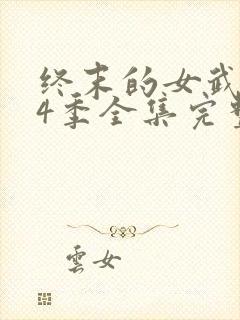 终末的女武
4季全集完整
雲女